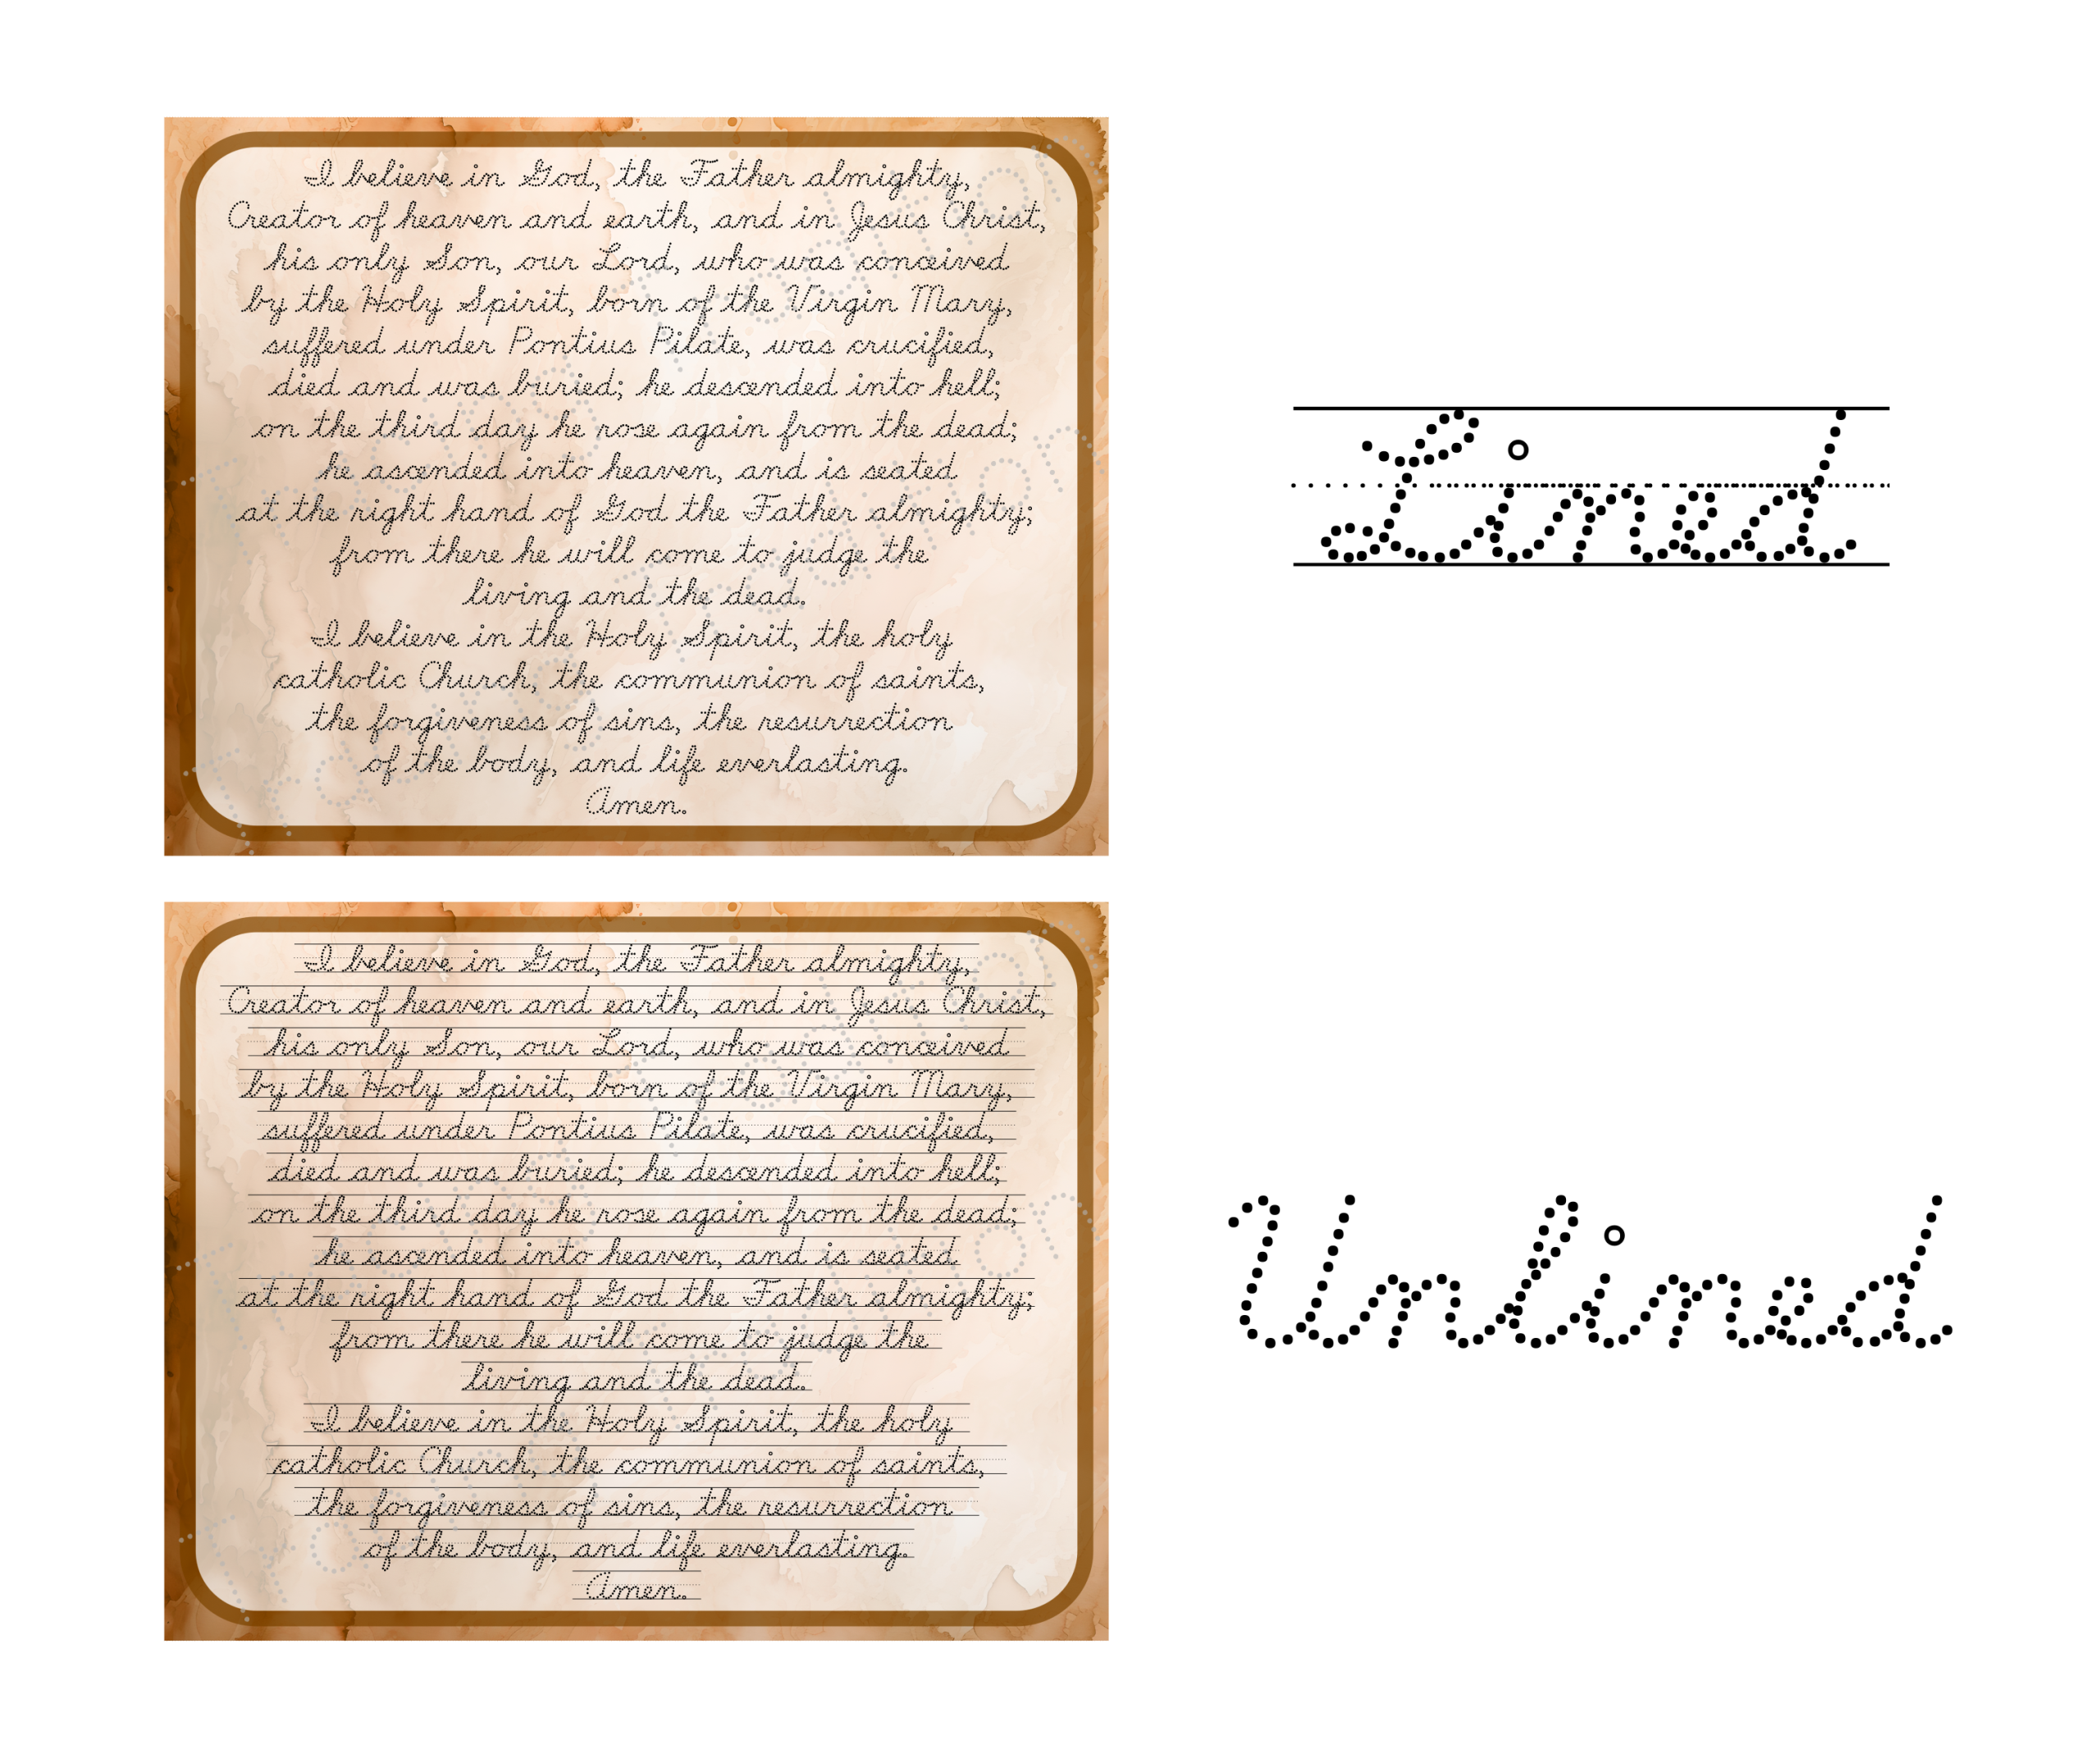 I believe in God, the Father almighty,
Creator of heaven and earth, and in Jesus Christ,
his only Son, our Lord, who was conceived
by the Holy Spirit, born of the Virgin Mary,
suffered under Pontius Pilate, was crucified,
died and was buried; he descended into hell;
on the third day he rose again from the dead;
he ascended into heaven, and is seated
at the right hand of God the Father almighty;
from there he will come to judge the
living and the dead.
I believe in the Holy Spirit, the holy
catholic Church, the communion of saints,
the forgiveness of sins, the resurrection
of the body, and life everlasting.
Amen.
Lined
I believe in God, the Father almighty,
Creator of heaven and earth, and in Jesus Christ,
his only Son, our Lord, who was conceived
by the Holy Spirit, born of the Virgin Mary,
suffered under Pontius Pilate, was crucified,
died and was buried; he descended into hell;
on the third day he rose again from the dead;
he ascended into heaven, and is seated
at the right hand of God the Father almighty;
from there he will come to judge the
living and the dead.
I believe in the Holy Spirit, the holy
catholic Church, the communion of saints,
the forgiveness of sins, the resurrection
of the body, and life everlasting.
Amen.
Unlined